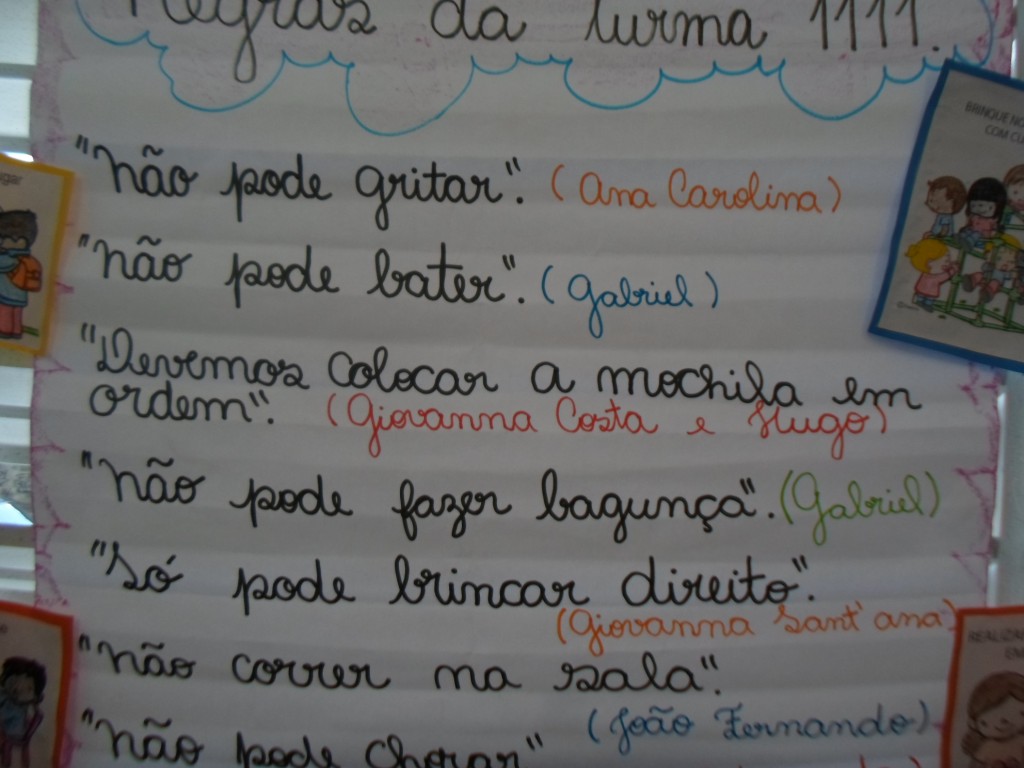 Regras da turma 1111.
"Não pode gritar". (Ana Carolina)
"Não pode bater". (Gabriel)
"Devemos colocar a mochila em
ordem". (Giovanna Costa e Hugo)
"Não pode fazer bagunça". (Gabriel)
"Só pode brincar direito".
(Giovanna Sant'ana)
"Não correr na sala".
(João Fernando)
"Não pode chorar"
BRINQUE NO
COM